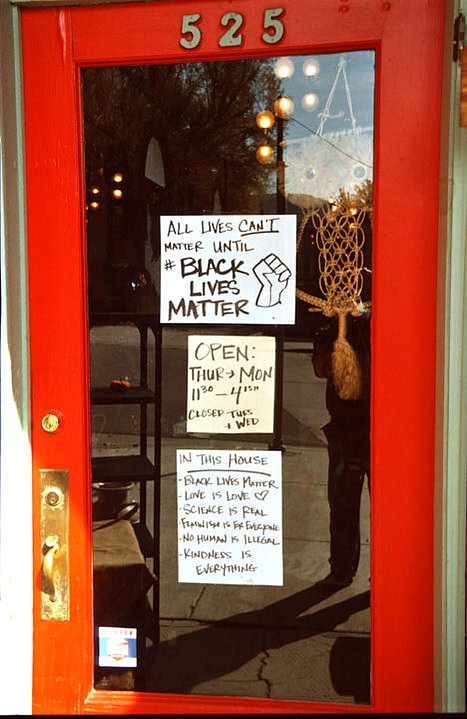 525
ALL LIVES CAN'T
MATTER UNTIL
# BLACK
LIVES
MATTER
OPEN:
THUR → MON
11³⁰ – 4ISH
CLOSED TUES
+ WED
IN THIS HOUSE
- BLACK LIVES MATTER
- LOVE IS LOVE ♡
- SCIENCE IS REAL
- FEMINISM IS FOR EVERYONE
- NO HUMAN IS ILLEGAL
- KINDNESS IS
EVERYTHING